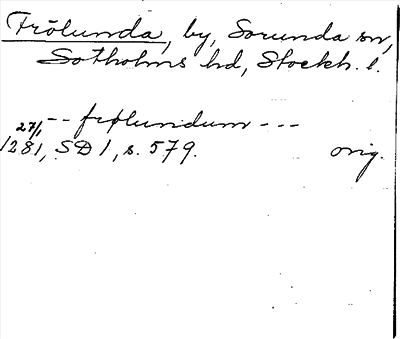 Frölunda, by, Sorunda sn,
Sotholms hd, Stockh. l.
27/1 -- frølundum ---
1281, SD 1, s. 579. orig.